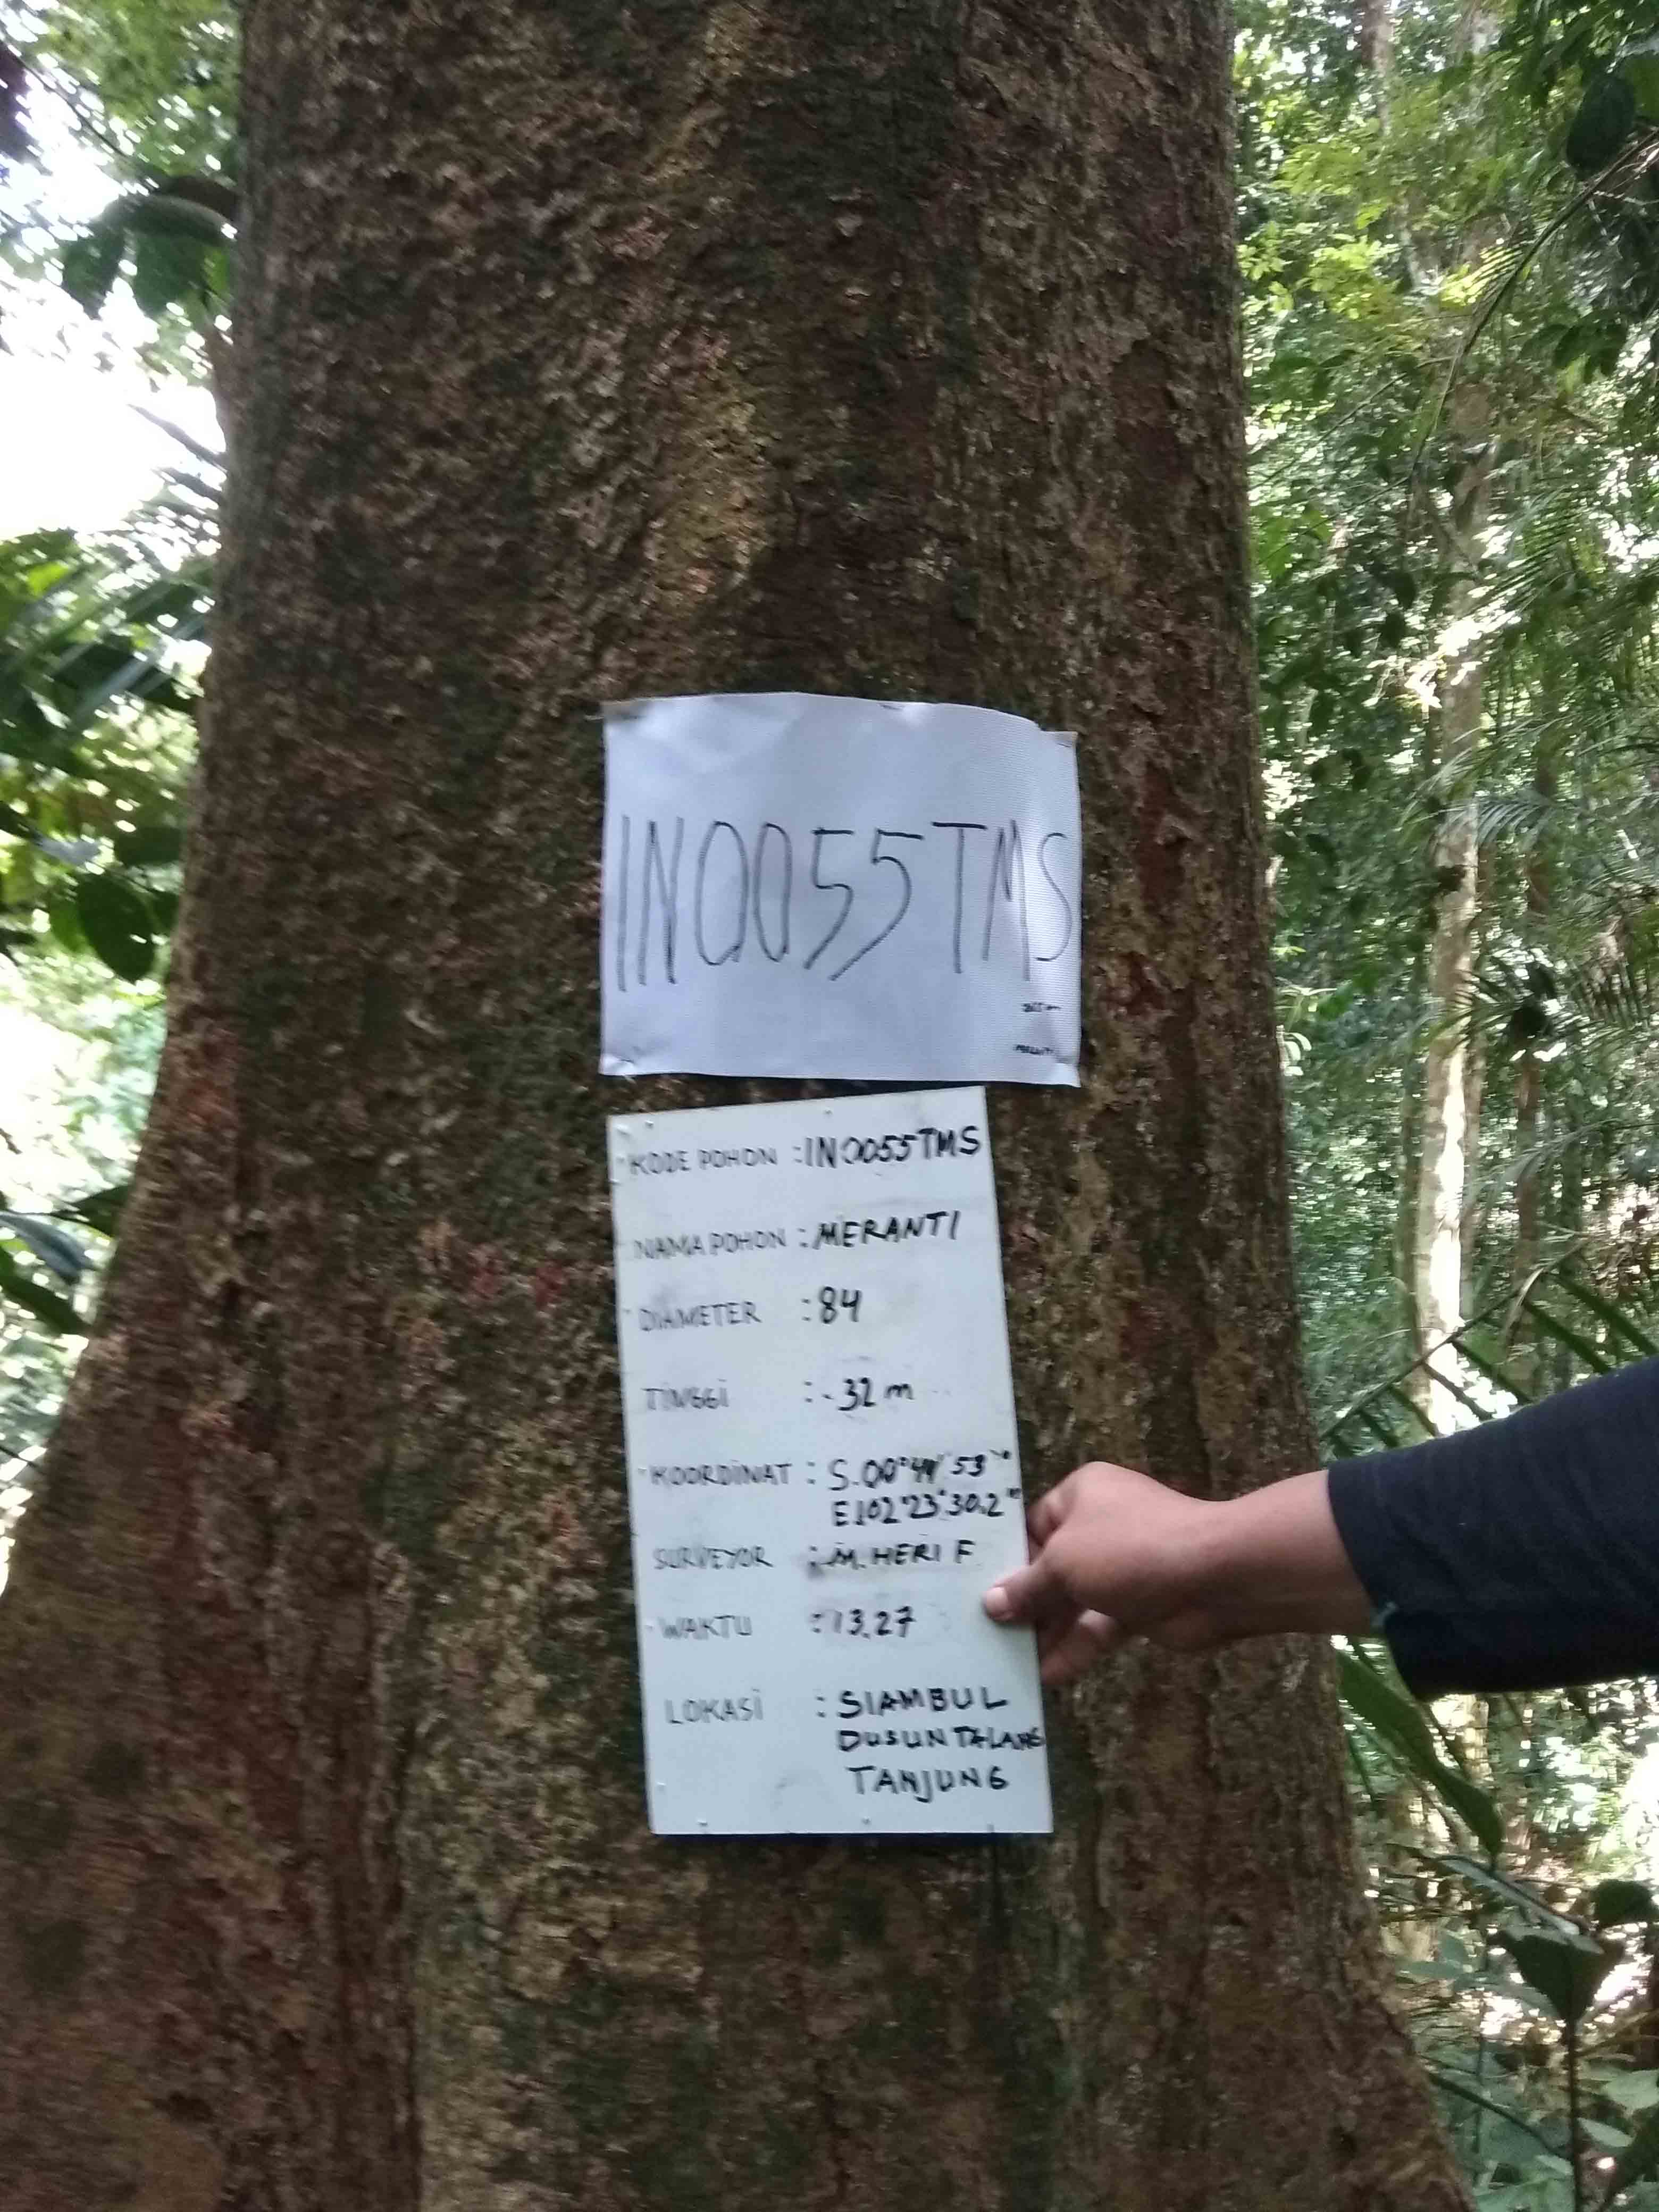 IN0055TMS
KODE POHON : IN0055TMS
NAMA POHON : MERANTI
DIAMETER : 84
TINGGI : - 32 m
KOORDINAT : S.00°44'53"
E.102°23'30.2"
SURVEYOR : M. HERI F
WAKTU : 13.27
LOKASI : SIAMBUL
DUSUN TALANG
TANJUNG